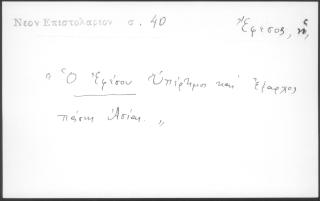 Νεον Επιστολαριον σ. 40
Ἔφεσος, ἡ,
"Ὁ Ἐφέσου Ὑπέρτιμος καὶ Ἔξαρχος
πάσης Ἀσίας."